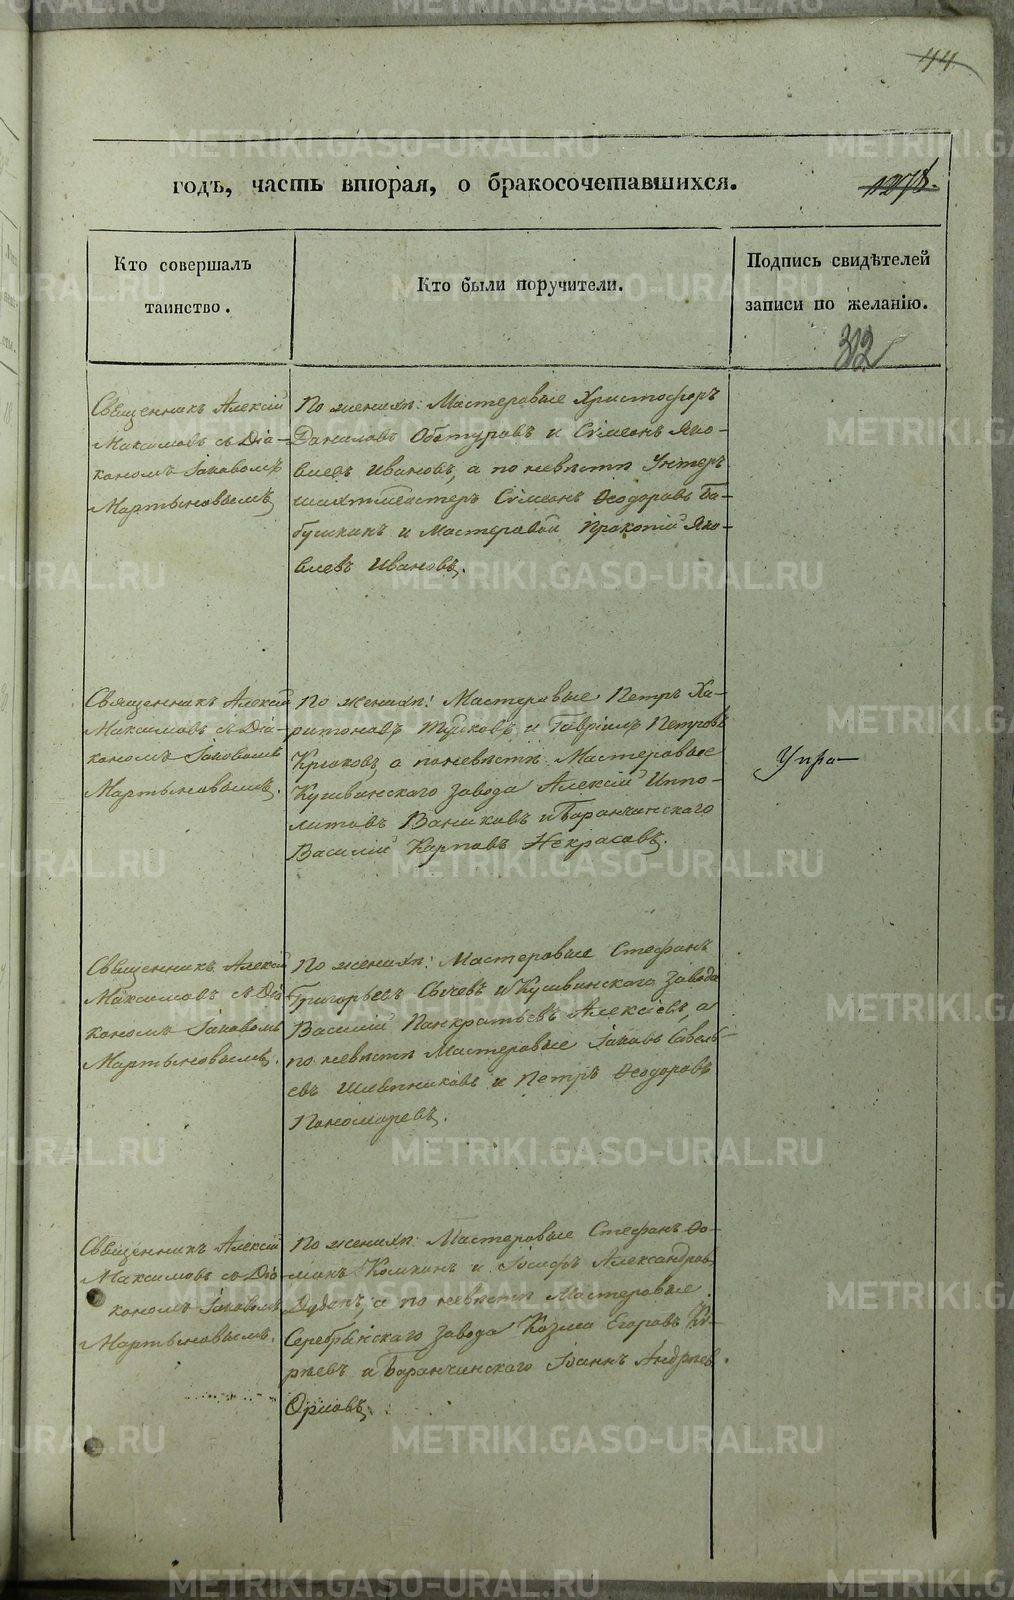 44
годъ, часть вторая, о бракосочетавшихся.
1278.
Кто совершалъ
таинство.
Кто были поручители.
Подпись свидѣтелей
записи по желанію.
312
Священникъ Алексій
Максимовъ съ Діа-
кономъ Іаковомъ
Мартыновымъ,
По женихѣ: Мастеровые Христофоръ
Даниловъ Обатуровъ и Сѵмеонъ Яко-
влевъ Ивановъ, а по невѣстѣ Унтеръ
шихтмейстеръ Сѵмеонъ Ѳеодоровъ Ба-
бушкинъ и Мастеровой Прокопій Яко-
влевъ Ивановъ,.
Священникъ Алексій
Максимовъ съ Діа-
кономъ Іаковомъ
Мартыновымъ,.
По женихѣ: Мастеровые Петръ Ха-
ритоновъ и Гавріилъ Петровъ
Крюковъ, а по невѣстѣ Мастеровые
Кушвинскаго завода Алексій Иппо-
литовъ Ваниковъ и Баранчинскаго
Василій Карповъ Некрасовъ,.
Упра
Священникъ Алексій
Максимовъ съ Діа
кономъ Іаковомъ
Мартыновымъ,.
По женихѣ: Мастеровые Стефанъ
Григорьевъ Сычевъ и Кушвинскаго завода
Василій Панкратьевъ Алексѣевъ, а
по невѣстѣ Мастеровые Іаковъ Савель-
евъ Шляпниковъ и Петръ Ѳеодоровъ
Пономаревъ,.
Священникъ Алексій
Максимовъ съ Діа
кономъ Іаковомъ
Мартыновымъ.
По женихѣ: Мастеровые Стефанъ Ѳо-
минъ Комкинъ и Іосифъ Александровъ
Дубанъ, а по невѣстѣ Мастеровые
Серебрянскаго завода Козма Егоровъ Ко-
рѣевъ и Баранчинскаго Іоаннъ Андреев.
Орловъ,.
METRIKI.GASO-URAL.RU